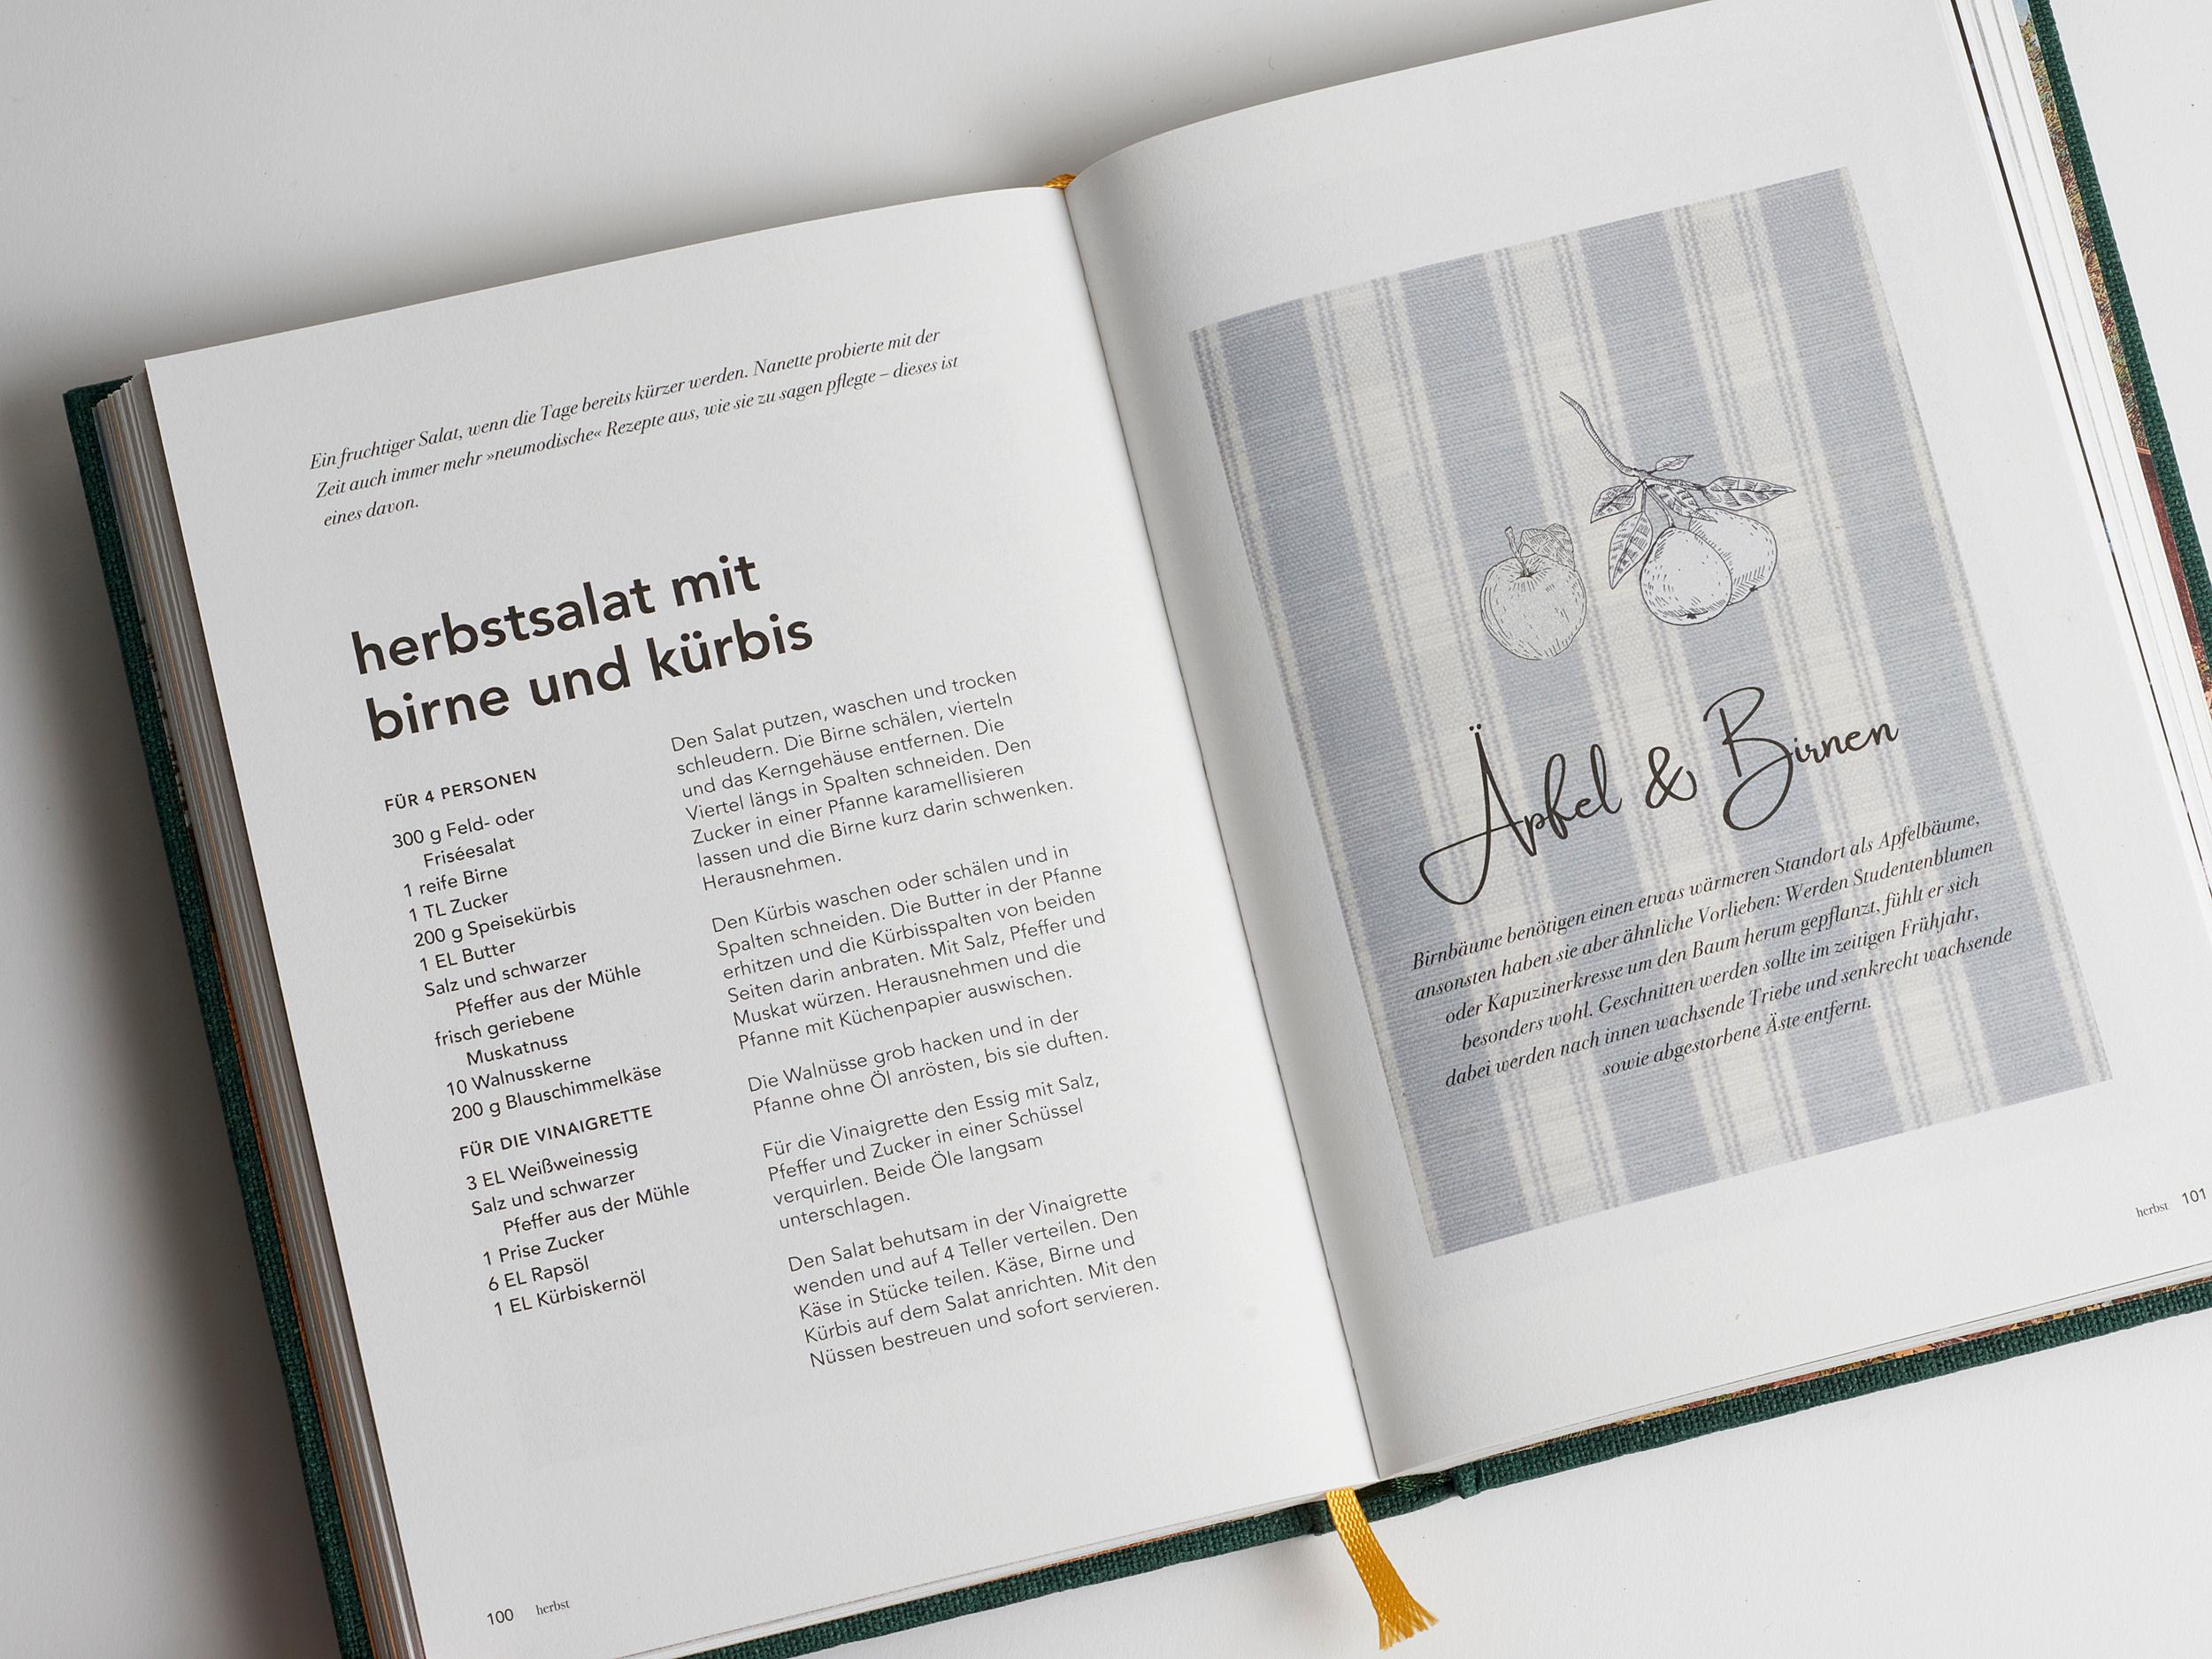 Ein fruchtiger Salat, wenn die Tage bereits kürzer werden. Nanette probierte mit der
Zeit auch immer mehr »neumodische« Rezepte aus, wie sie zu sagen pflegte – dieses ist
eines davon.
herbstsalat mit
birne und kürbis
FÜR 4 PERSONEN
300 g Feld- oder
Friséesalat
1 reife Birne
1 TL Zucker
200 g Speisekürbis
1 EL Butter
Salz und schwarzer
Pfeffer aus der Mühle
frisch geriebene
Muskatnuss
10 Walnusskerne
200 g Blauschimmelkäse
FÜR DIE VINAIGRETTE
3 EL Weißweinessig
Salz und schwarzer
Pfeffer aus der Mühle
1 Prise Zucker
6 EL Rapsöl
1 EL Kürbiskernöl
Den Salat putzen, waschen und trocken
schleudern. Die Birne schälen, vierteln
und das Kerngehäuse entfernen. Die
Viertel längs in Spalten schneiden. Den
Zucker in einer Pfanne karamellisieren
lassen und die Birne kurz darin schwenken.
Herausnehmen.
Den Kürbis waschen oder schälen und in
Spalten schneiden. Die Butter in der Pfanne
erhitzen und die Kürbisspalten von beiden
Seiten darin anbraten. Mit Salz, Pfeffer und
Muskat würzen. Herausnehmen und die
Pfanne mit Küchenpapier auswischen.
Die Walnüsse grob hacken und in der
Pfanne ohne Öl anrösten, bis sie duften.
Für die Vinaigrette den Essig mit Salz,
Pfeffer und Zucker in einer Schüssel
verquirlen. Beide Öle langsam
unterschlagen.
Den Salat behutsam in der Vinaigrette
wenden und auf 4 Teller verteilen. Den
Käse in Stücke teilen. Käse, Birne und
Kürbis auf dem Salat anrichten. Mit den
Nüssen bestreuen und sofort servieren.
100 herbst
Äpfel & Birnen
Birnbäume benötigen einen etwas wärmeren Standort als Apfelbäume,
ansonsten haben sie aber ähnliche Vorlieben: Werden Studentenblumen
oder Kapuzinerkresse um den Baum herum gepflanzt, fühlt er sich
besonders wohl. Geschnitten werden sollte im zeitigen Frühjahr,
dabei werden nach innen wachsende Triebe und senkrecht wachsende
sowie abgestorbene Äste entfernt.
herbst 101